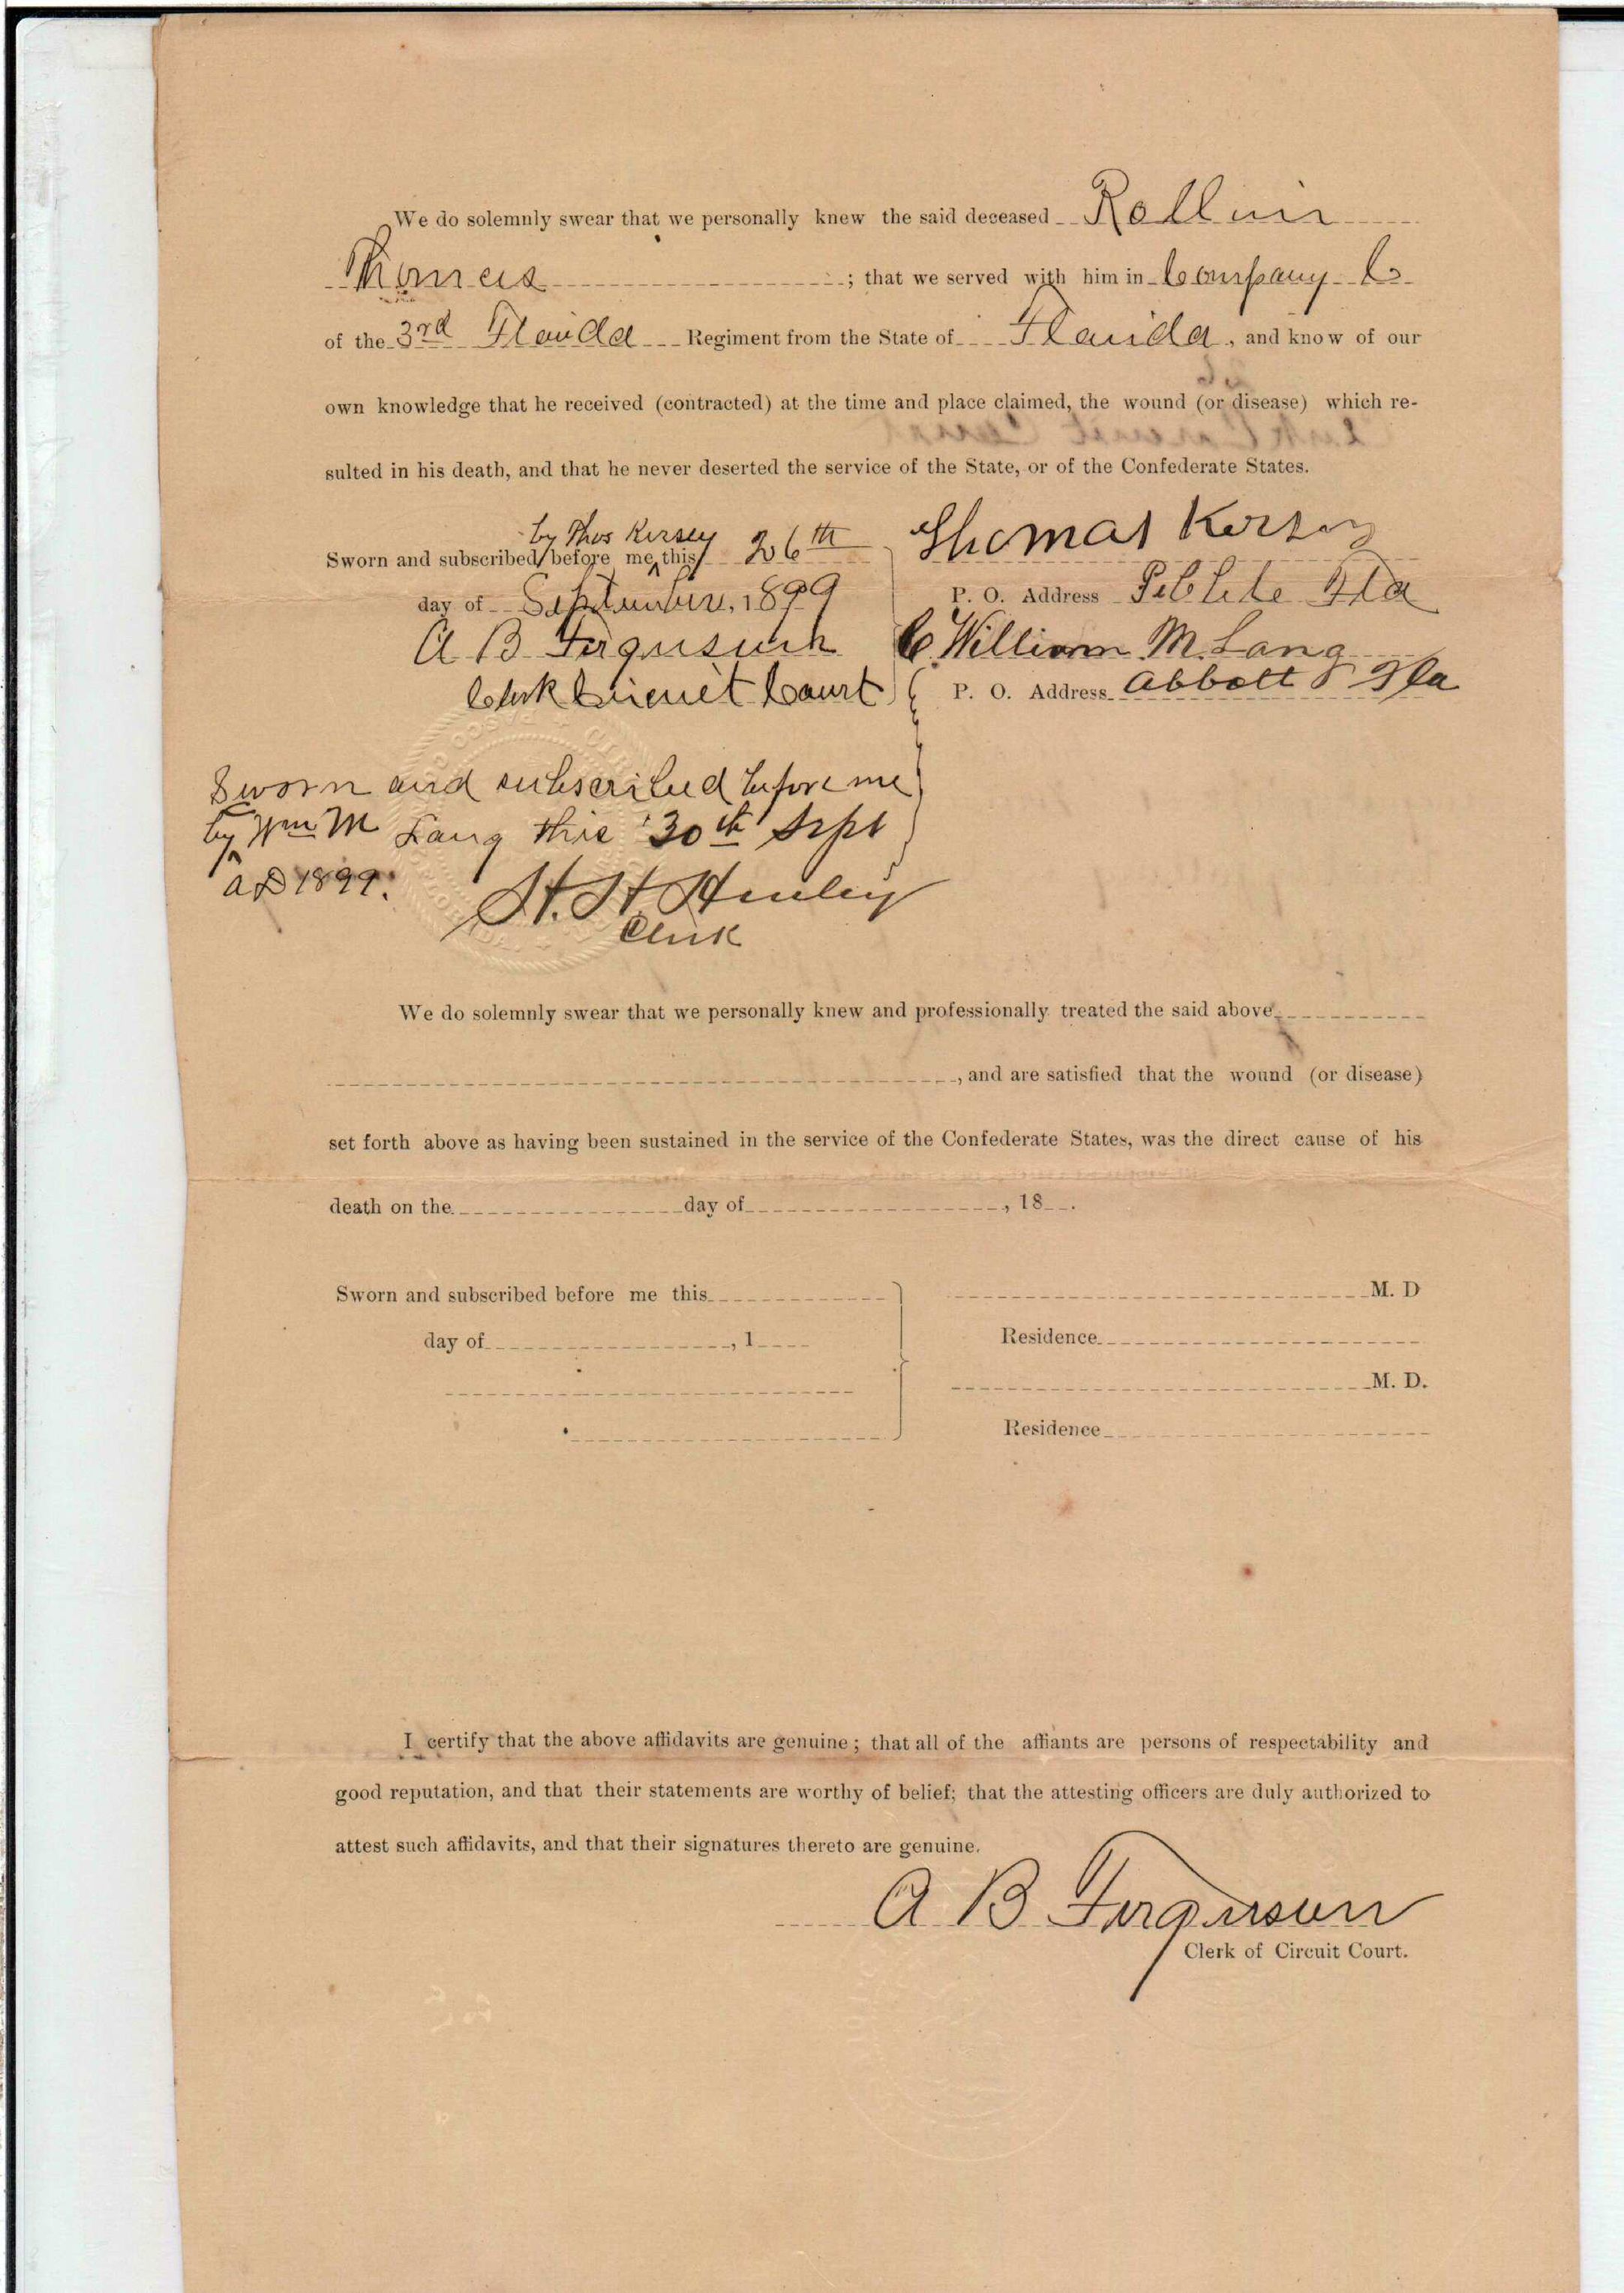 We do solemnly swear that we personally knew the said deceased Rollin
Thomas ; that we served with him in Company C
of the 3rd Florida Regiment from the State of Florida, and know of our
own knowledge that he received (contracted) at the time and place claimed, the wound (or disease) which re-
sulted in his death, and that he never deserted the service of the State, or of the Confederate States.
by Thos Kersey
Sworn and subscribed before me this 26th
day of September, 1899
A B Ferguson
Clerk Circuit Court
Thomas Kersey
P. O. Address Fla
C. William M. Lang
P. O. Address Abbott Fla
Sworn and subscribed before me
by Wm M Lang this 30th Sept
AD 1899.
H. H. Henley
Clerk
We do solemnly swear that we personally knew and professionally treated the said above
, and are satisfied that the wound (or disease)
set forth above as having been sustained in the service of the Confederate States, was the direct cause of his
death on the day of , 18 .
Sworn and subscribed before me this
day of , 1
M. D
Residence
M. D.
Residence
I certify that the above affidavits are genuine; that all of the affiants are persons of respectability and
good reputation, and that their statements are worthy of belief; that the attesting officers are duly authorized to
attest such affidavits, and that their signatures thereto are genuine.
A B Ferguson
Clerk of Circuit Court.